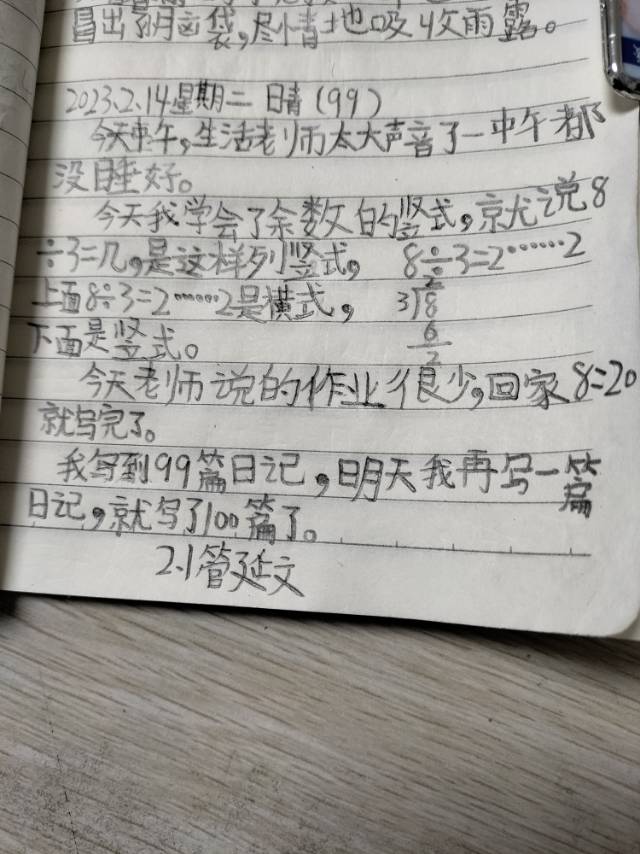 冒出了脑袋,尽情地吸收雨露。
2023.2.14星期二 晴(99)
今天中午,生活老师太大声音了一中午都
没睡好。
今天我学会了余数的竖式,就说8
÷3=几,是这样列竖式, 8÷3=2……2
上面8÷3=2……2是横式,
2
3 8
下面是竖式。
6
2
今天老师说的作业很少,回家8:20
就写完了。
我写到99篇日记,明天我再写一篇
日记,就写了100篇了。
2.1管延文